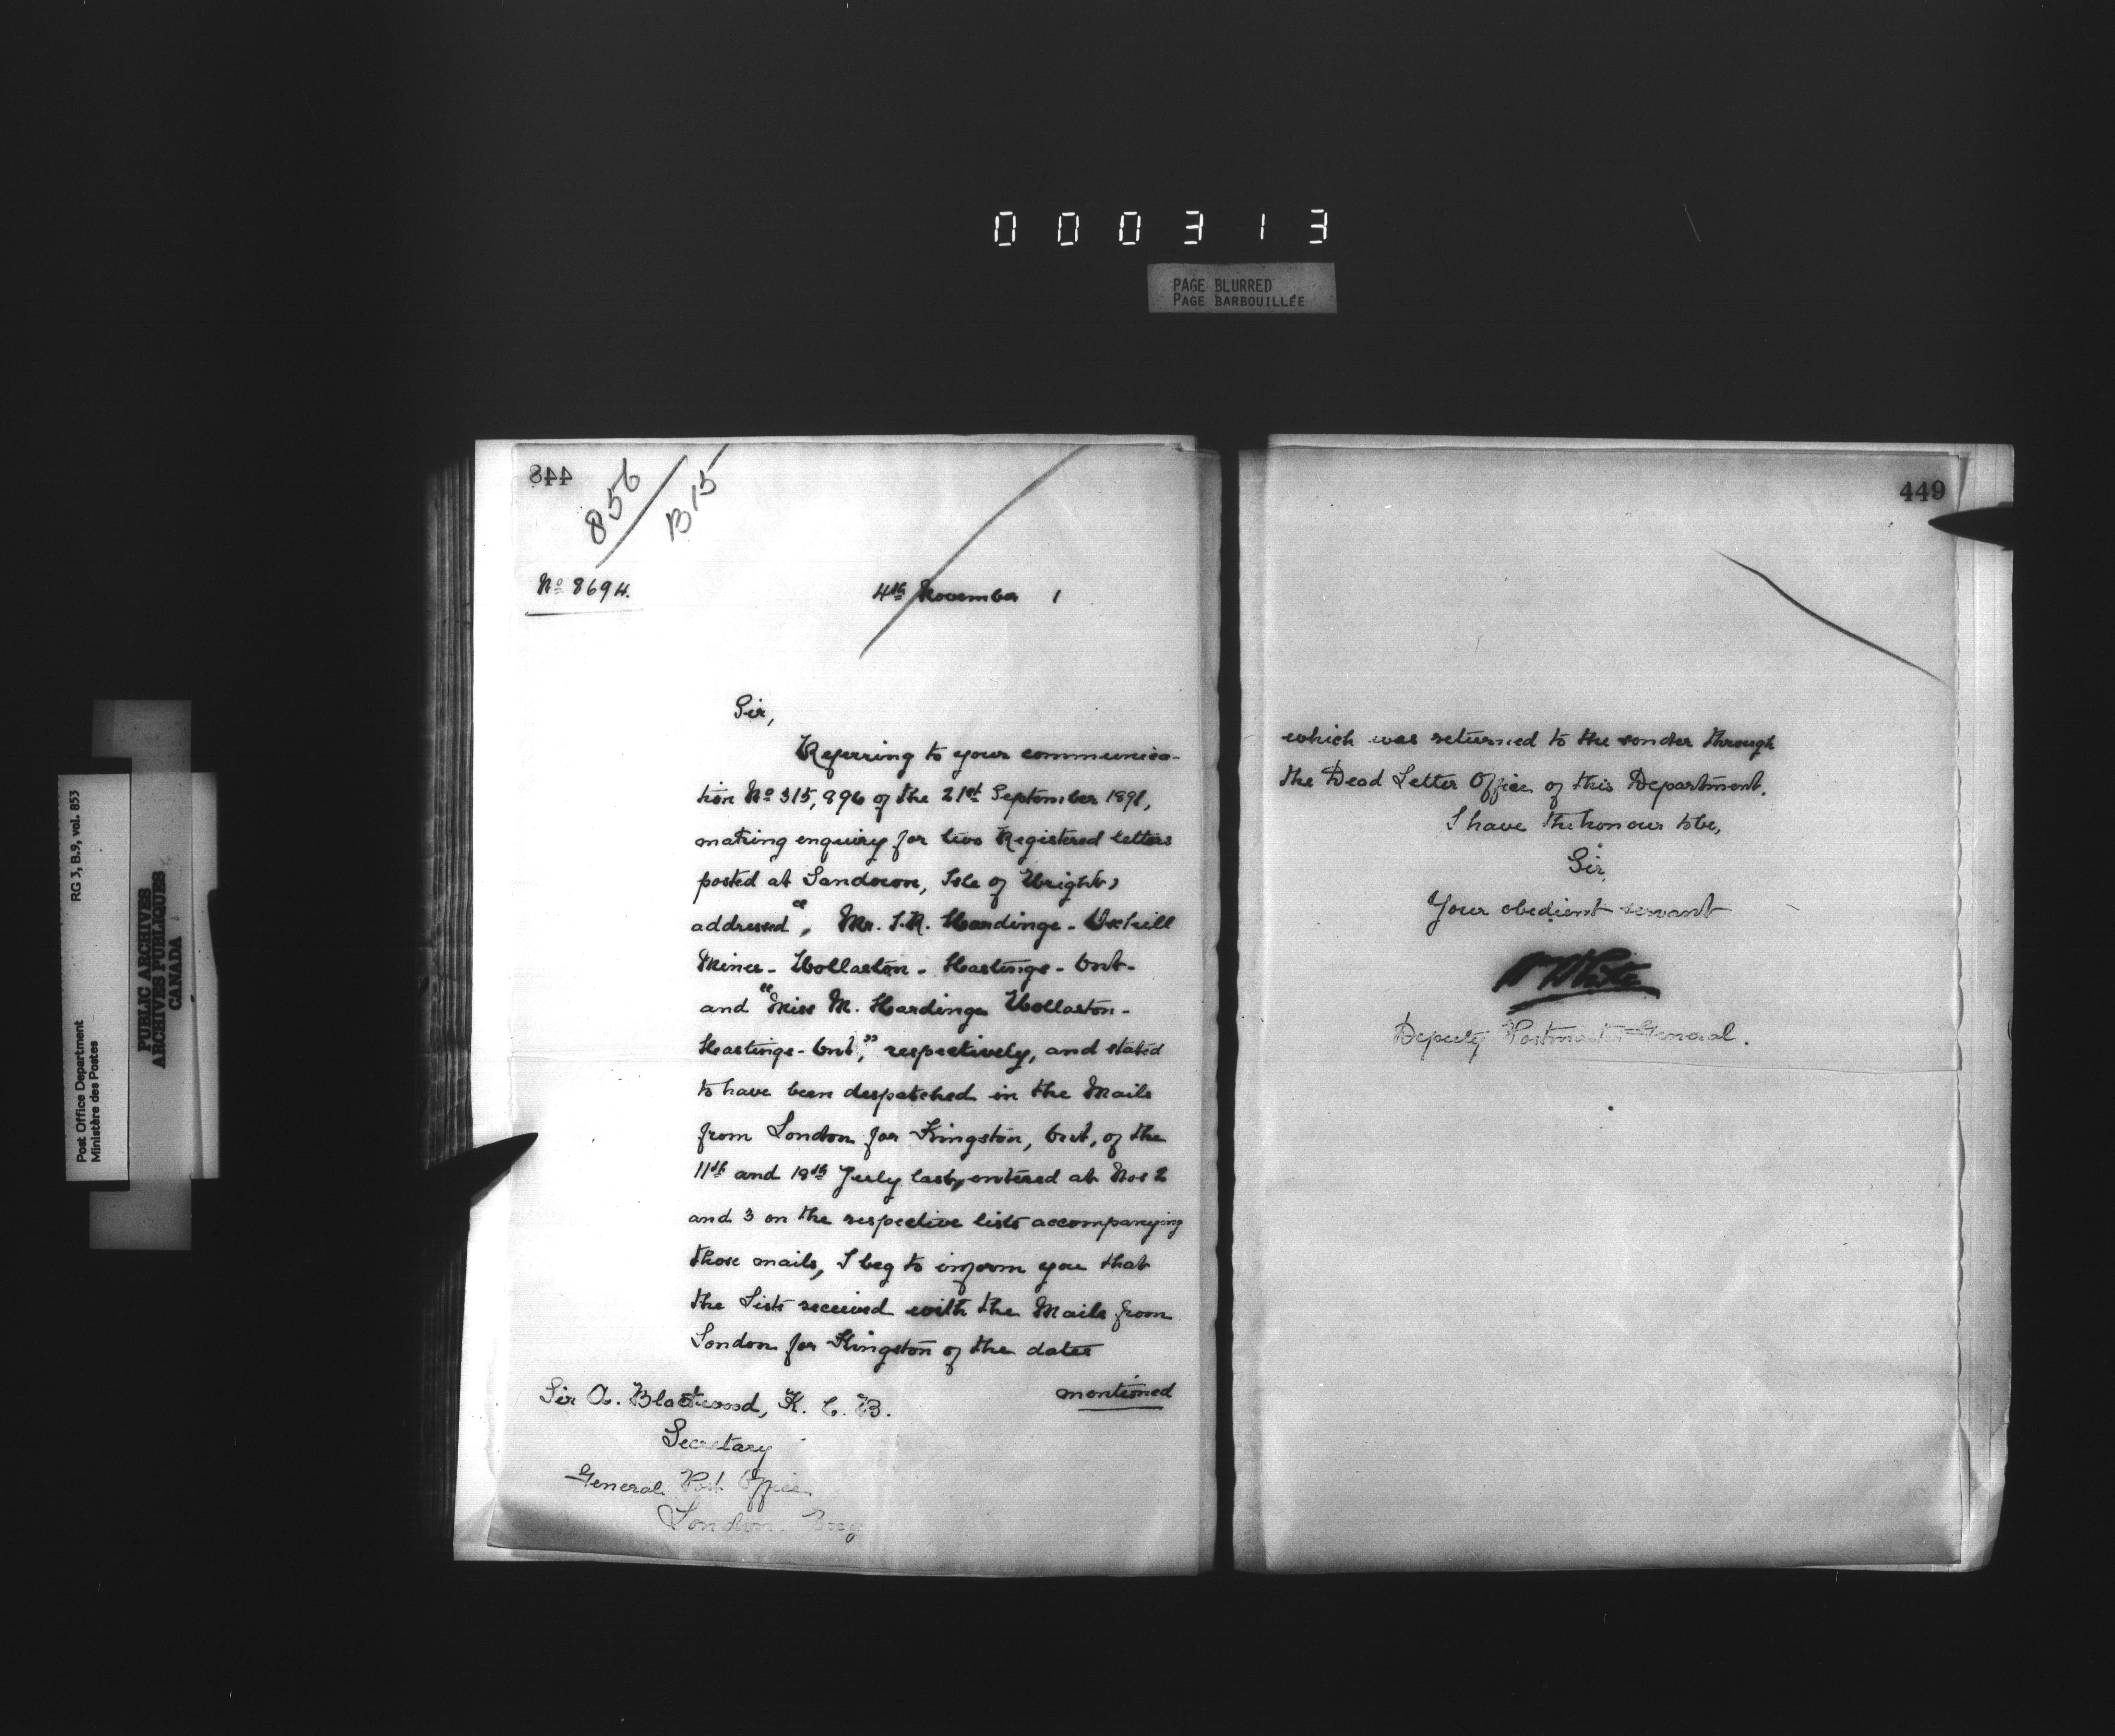 000313
PAGE BLURRED
PAGE BARBOUILLÉE
Post Office Department
Ministère des Postes
RG 3, B.9, vol. 853
PUBLIC ARCHIVES
ARCHIVES PUBLIQUES
CANADA
448
856
B15
No 8694.
4th November 1
Sir,
Referring to your communica-
tion No 315,896 of the 21st September 1891,
making enquiry for two Registered letters
posted at Sandown, Isle of Wright,
addressed " Mr. S.R. Hardinge -
Mines - Wollaston - Hastings - Ont -
and "Miss M. Hardinge Wollaston -
Hastings - Ont," respectively, and stated
to have been despatched in the Mails
from London for Kingston, Ont, of the
11th and 18th July last, entered at Nos 2
and 3 on the respective lists accompanying
those mails, I beg to inform you that
the Lists received with the Mails from
London for Kingston of the dates
mentioned
Sir A. Blackwood, K. C. B.
Secretary
General Post Office
London Eng
449
which was returned to the sender through
the Dead Letter Office of this Department.
I have the honour to be,
Sir,
Your obedient servant
W White
Deputy Postmaster General.